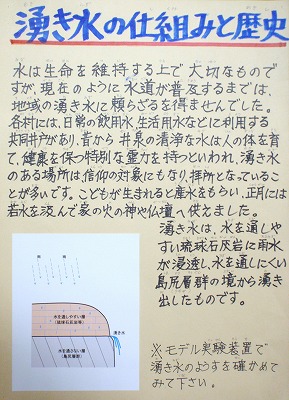 湧き水の仕組みと歴史
水は生命を維持する上で大切なもので
すが、現在のように水道が普及するまでは、
地域の湧き水に頼らざるを得ませんでした。
各村には、日常の飲用水、生活用水などに利用する
共同井戸があり、昔から井泉の清浄な水は人の体を育
て、健康を保つ特別な霊力を持つといわれ、湧き水
のある場所は、信仰の対象にもなり、拝所となっているこ
とが多いです。こどもが生まれると産水をもらい、正月には
若水を汲んで家の火の神や仏壇へ供えました。
湧き水は、水を通しや
すい琉球石灰岩に雨水
が浸透し、水を通しにくい
島尻層群の境から湧き
出したものです。
雨 雨
水を通しやすい層
(琉球石灰岩等)
湧き水
水を通さない層
(島尻層群)
※モデル実験装置で
湧き水のようすを確かめて
みて下さい。